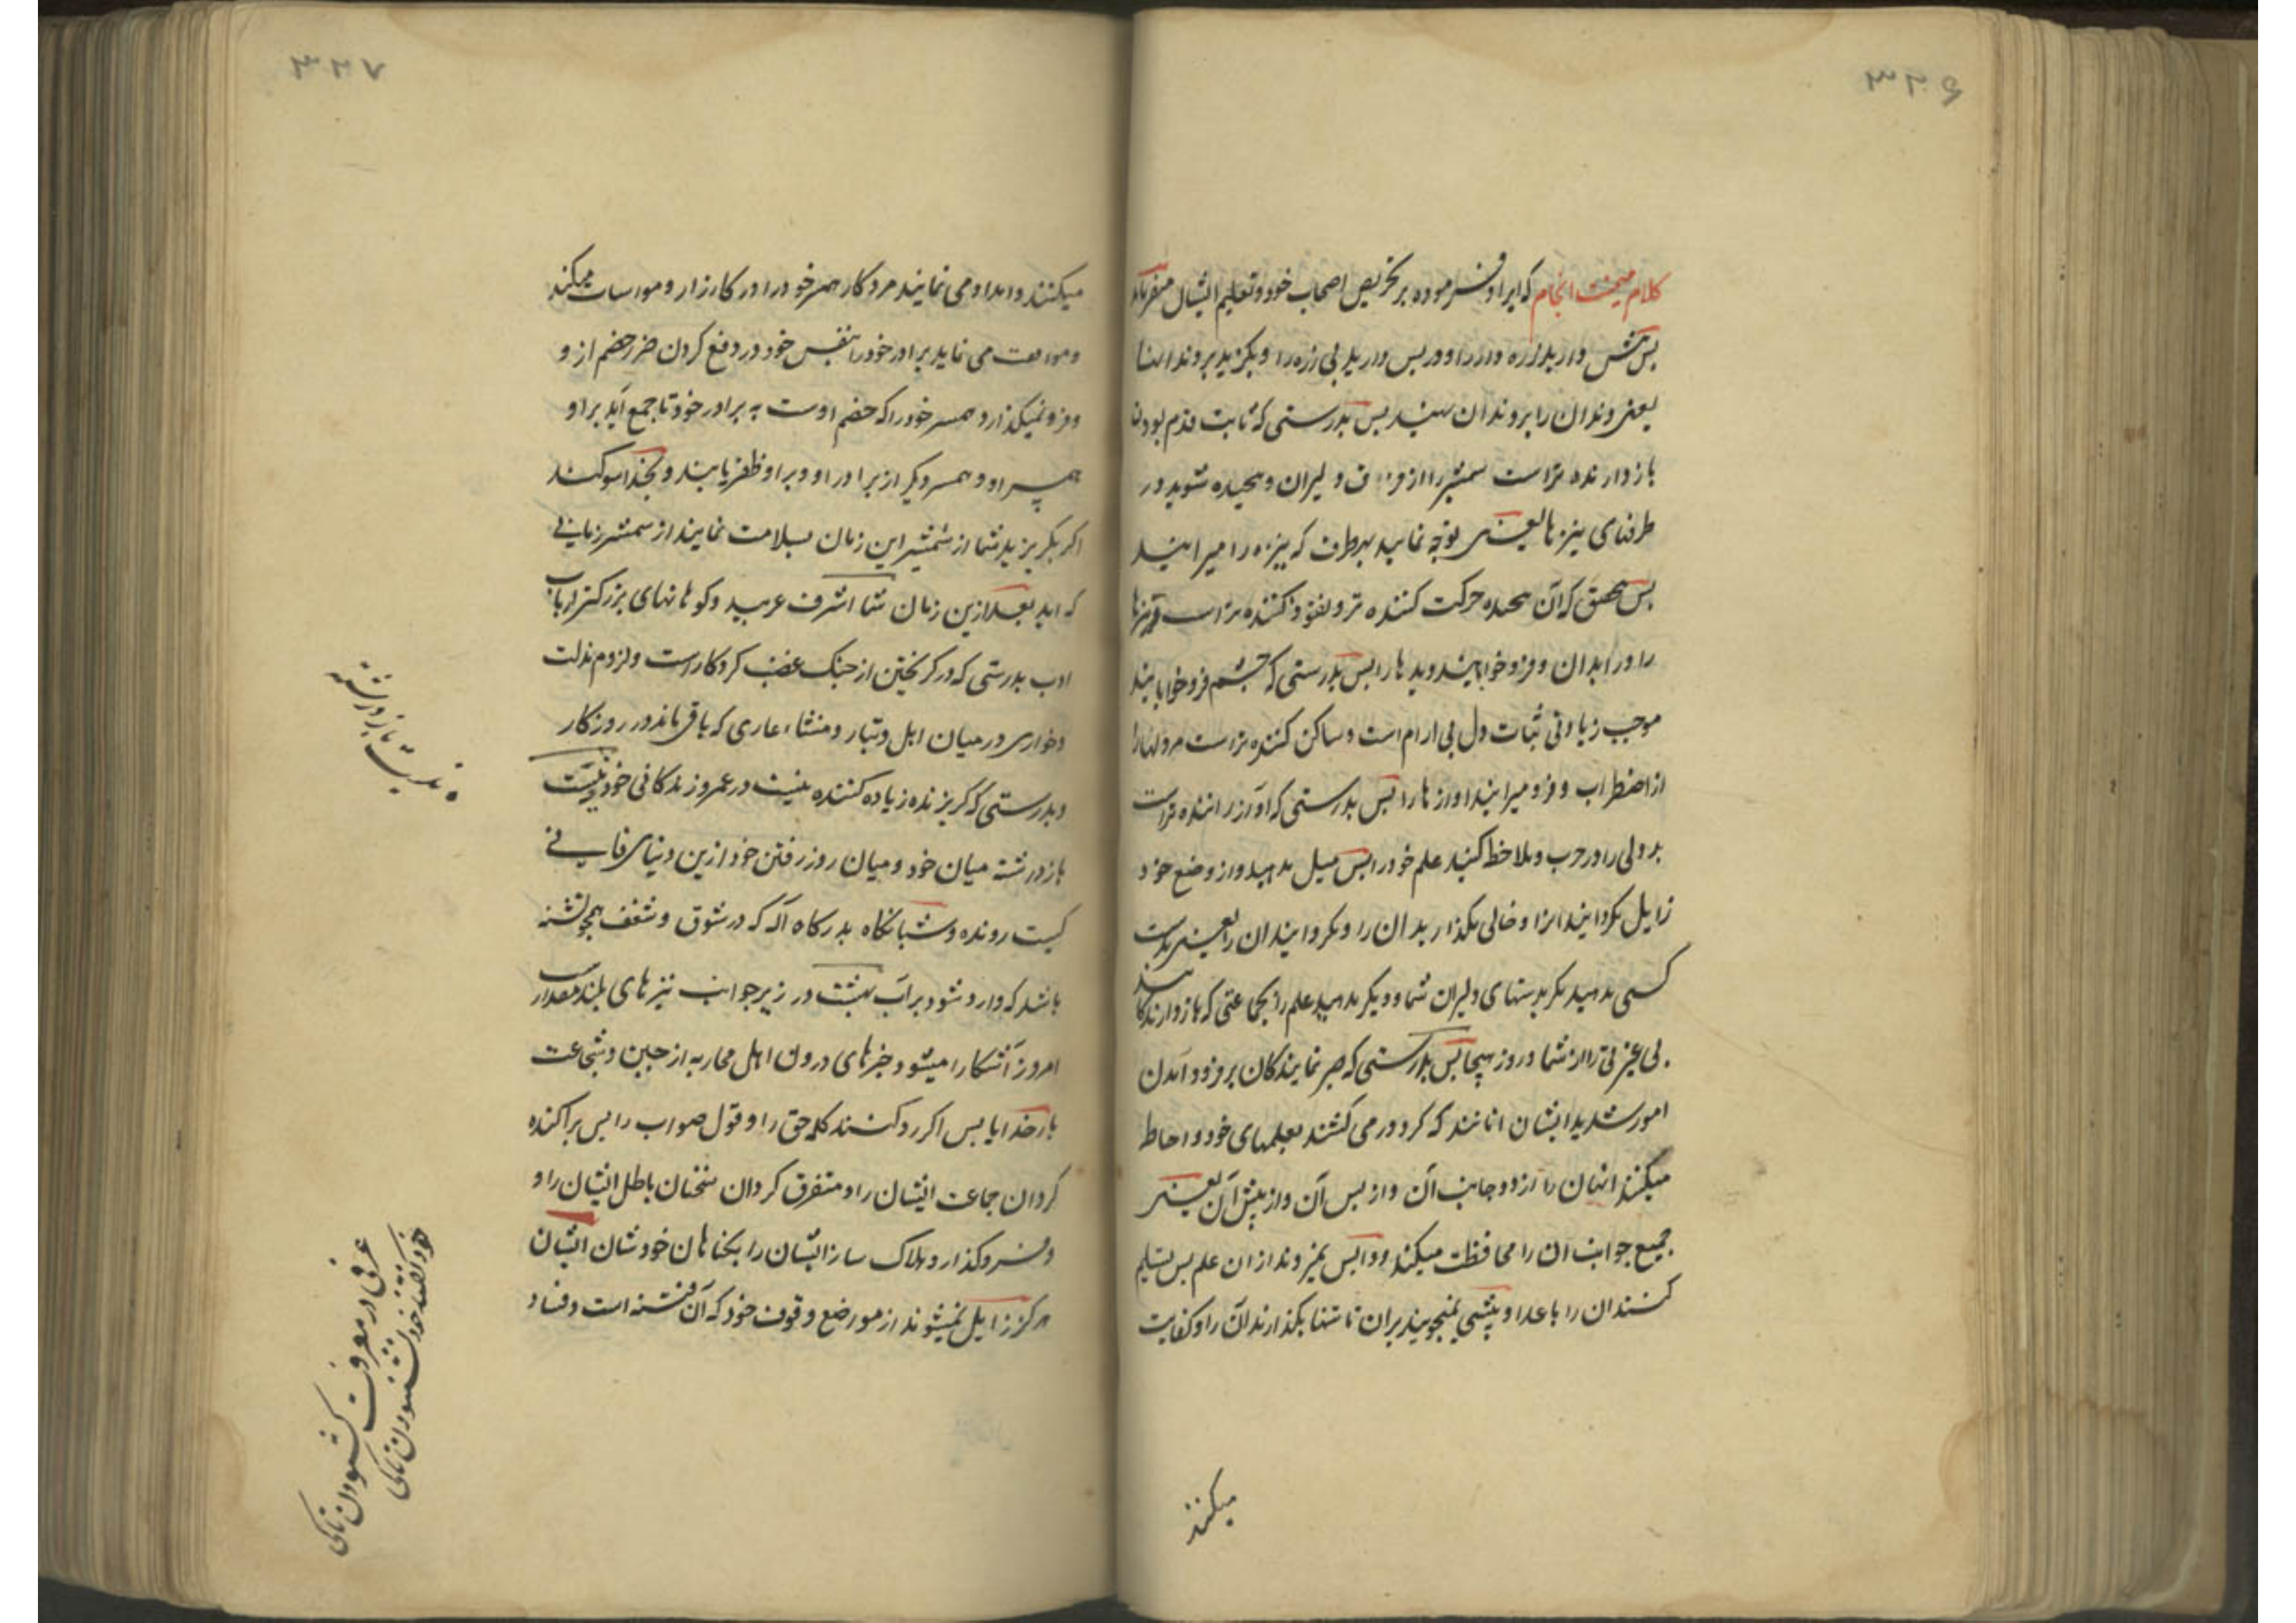 ۳۲۶
کلام میمنت انجام که ایراد فرموده بر تحریص اصحاب خود و تعلیم ایشان میفرماید
پس پیش دارید زره دار را و پس دارید بی زره را و بگزید بدندانها
یعنی دندان را بر دندان نهید پس بدرستی که ثابت قدم بودن
باز دارنده تر است شمشیر را از فرق دلیران و پیچیده شوید در
طرفهای نیزها یعنی توجه نمایید بهر طرف که نیزه را میرانید
پس بتحقیق که آن پیچیده حرکت کننده تر و نفوذ کننده تر است مر نیزها
را در ابدان و فرو خوابانید دیدها را پس بدرستی که چشم فرو خوابانید
موجب زیادتی ثبات دل بی ارام است و ساکن کننده تر است مر دلها را
از اضطراب و فرو میرانید اوازها را پس بدرستی که آن راننده تر است
بددلی را در حرب و ملاحظه کنید علم خود را پس میل مدهید و از وضع خود
زایل مگردانید انرا و خالی مگذارید ان را و مگردانید ان را یعنی بدست
کسی مدهید مگر بدستهای دلیران شما و دیگر مدهید علم را بجماعتی که باز دارندگانند
بی عزتی را از شما در روز هیجا پس بدرستی که صبر نمایندگان بر فرود آمدن
امور شدید ایشان انانند که گرد در می کشند بعلمهای خود و احاطه
میکنند انهان را از دو جانب آن و از پس آن و از پیش آن یعنی
جمیع جوانب ان را محافظت میکنند و واپس نمیروند از ان علم پس تسلیم
کنند ان را باعدا و پیشی نمیجویند بر ان تا تنها بگذارند آن را و کفایت
میکنند
۳۲۷
میکنند و امداد می نمایند مرد کار همسر خود را در کارزار و مواسات میکند
و موافقت می نماید برادر خود را بنفس خود در دفع کردن ضرر خصم از و
و فرو نمیگذارد همسر خود را که خصم اوست به برادر خود تا جمع آید بر او
همسر او و همسر دیگر از برادر او و بر او ظفر یابند و بخدا سوگند
اگر بگریزید شما از شمشیر این زمان بسلامت نمانید از شمشیر زمانی
که اید بعد ازین زمان شما اشرف عربید و کوهانهای بزرگتر ارباب
ادب بدرستی که در گریختن از جنگ غضب کردکار است و لزوم مذلت
و خواری در میان اهل و تبار و منشاء عاری که باقی ماند در روزگار
و بدرستی که گریزنده زیاده کننده نیست در عمر و زندگانی خود و نیست
بازدرشته میان خود و میان روز رفتن خود ازین دنیای فانی
کیست رونده و شبانگاه بدرگاه آله که در شوق و شغف همچو تشنه
باشد که وارد شود بر آب بهشت در زیر جوانب نیزهای بلند مقدار
امروز آشکارا میشود خبرهای درون اهل محاربه از جبن و شجاعت
بارخدایا پس اگر رد کنند کلمه حق را و قول صواب را پس پراکنده
گردان جماعت ایشان را و متفرق گردان سخنان باطل ایشان را و
فرو گذار و هلاک ساز ایشان را بگناهان خودشان ایشان
هرگز زایل نمیشوند از مواضع وقوف خود که آن فتنه است و فساد